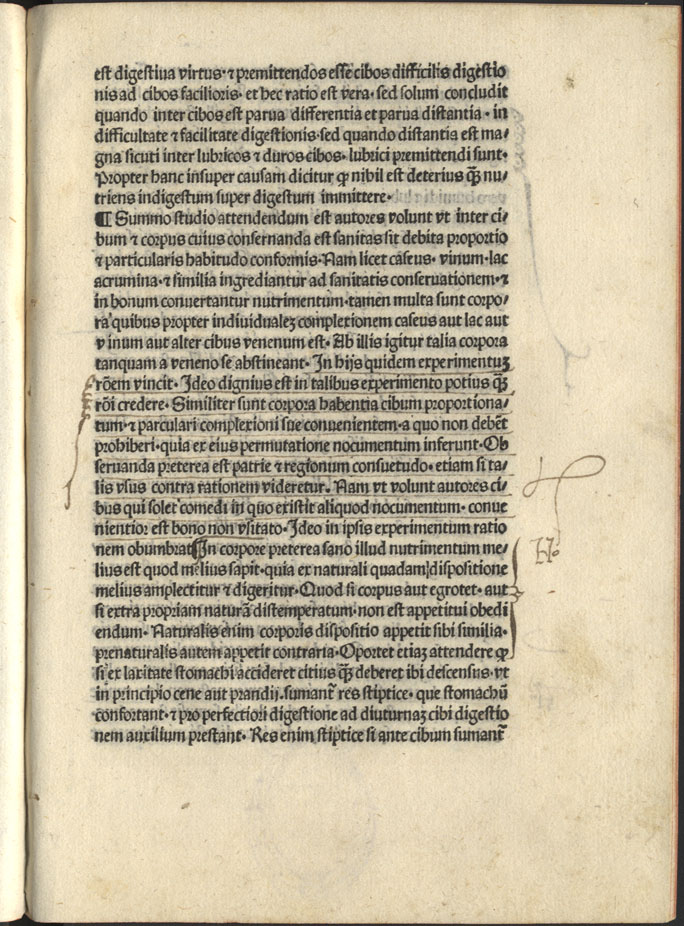 est digestiua virtus· ⁊ premittendos esse cibos difficilis digestio
nis ad cibos facilioris· et hec ratio est vera· sed solum concludit
quando inter cibos est parua differentia et parua distantia · in
difficultate ⁊ facilitate digestionis· sed quando distantia est ma⸗
gna sicuti inter lubricos ⁊ duros cibos· lubrici premittendi sunt·
Propter hanc insuper causam dicitur ꝙ nihil est deterius q̃ꝫ nu⸗
triens indigestum super digestum immittere·
¶ Summo studio attendendum est autores volunt vt inter ci⸗
bum ⁊ corpus cuius conseruanda est sanitas sit debita proportio
⁊ particularis habitudo conformis· Nam licet caseus· vinum· lac
acrumina· ⁊ similia ingrediantur ad sanitatis conseruationem· ⁊
in bonum conuertantur nutrimentum· tamen multa sunt corpo⸗
ra quibus propter indiuidualeꝫ complexionem caseus aut lac aut
v inum aut alter cibus venenum est· Ab illis igitur talia corpora
tanquam a veneno se abstineant· In hijs quidem experimentuꝫ
rōem vincit· Ideo dignius est in talibus experimento potius q̃ꝫ
rōi credere· Similiter sunt corpora habentia cibum proportiona⸗
tum· ⁊ parculari complexioni sue conuenientem· a quo non debēt
prohiberi· quia ex eius permutatione nocumentum inferunt· Ob
seruanda preterea est patrie ⁊ regionum consuetudo· etiam si ta⸗
lis vsus contra rationem videretur· Nam vt volunt autores ci⸗
bus qui solet comedi in quo existit aliquod nocumentum· conue
nientior est bono non vsitato· Ideo in ipsis experimentum ratio
nem obumbrat ¶In corpore preterea sano illud nutrimentum me⸗
lius est quod melius sapit· quia ex naturali quadam dispositione
melius amplectitur ⁊ digeritur· Quod si corpus aut egrotet· aut
si extra propriam naturā distemperatum· non est appetitui obedi
endum· Naturalis enim corporis dispositio appetit sibi similia·
prenaturalis autem appetit contraria· Oportet etiaꝫ attendere ꝙ
si ex laxitate stomachi accideret citius q̃ꝫ deberet ibi descensus· vt
in principio cene aut prandij· sumant̃ res stiptice· que stomachū
confortant· ⁊ pro perfectiori digestione ad diuturnaꝫ cibi digestio
nem auxilium prestant· Res enim stiptice si ante cibum sumant̃